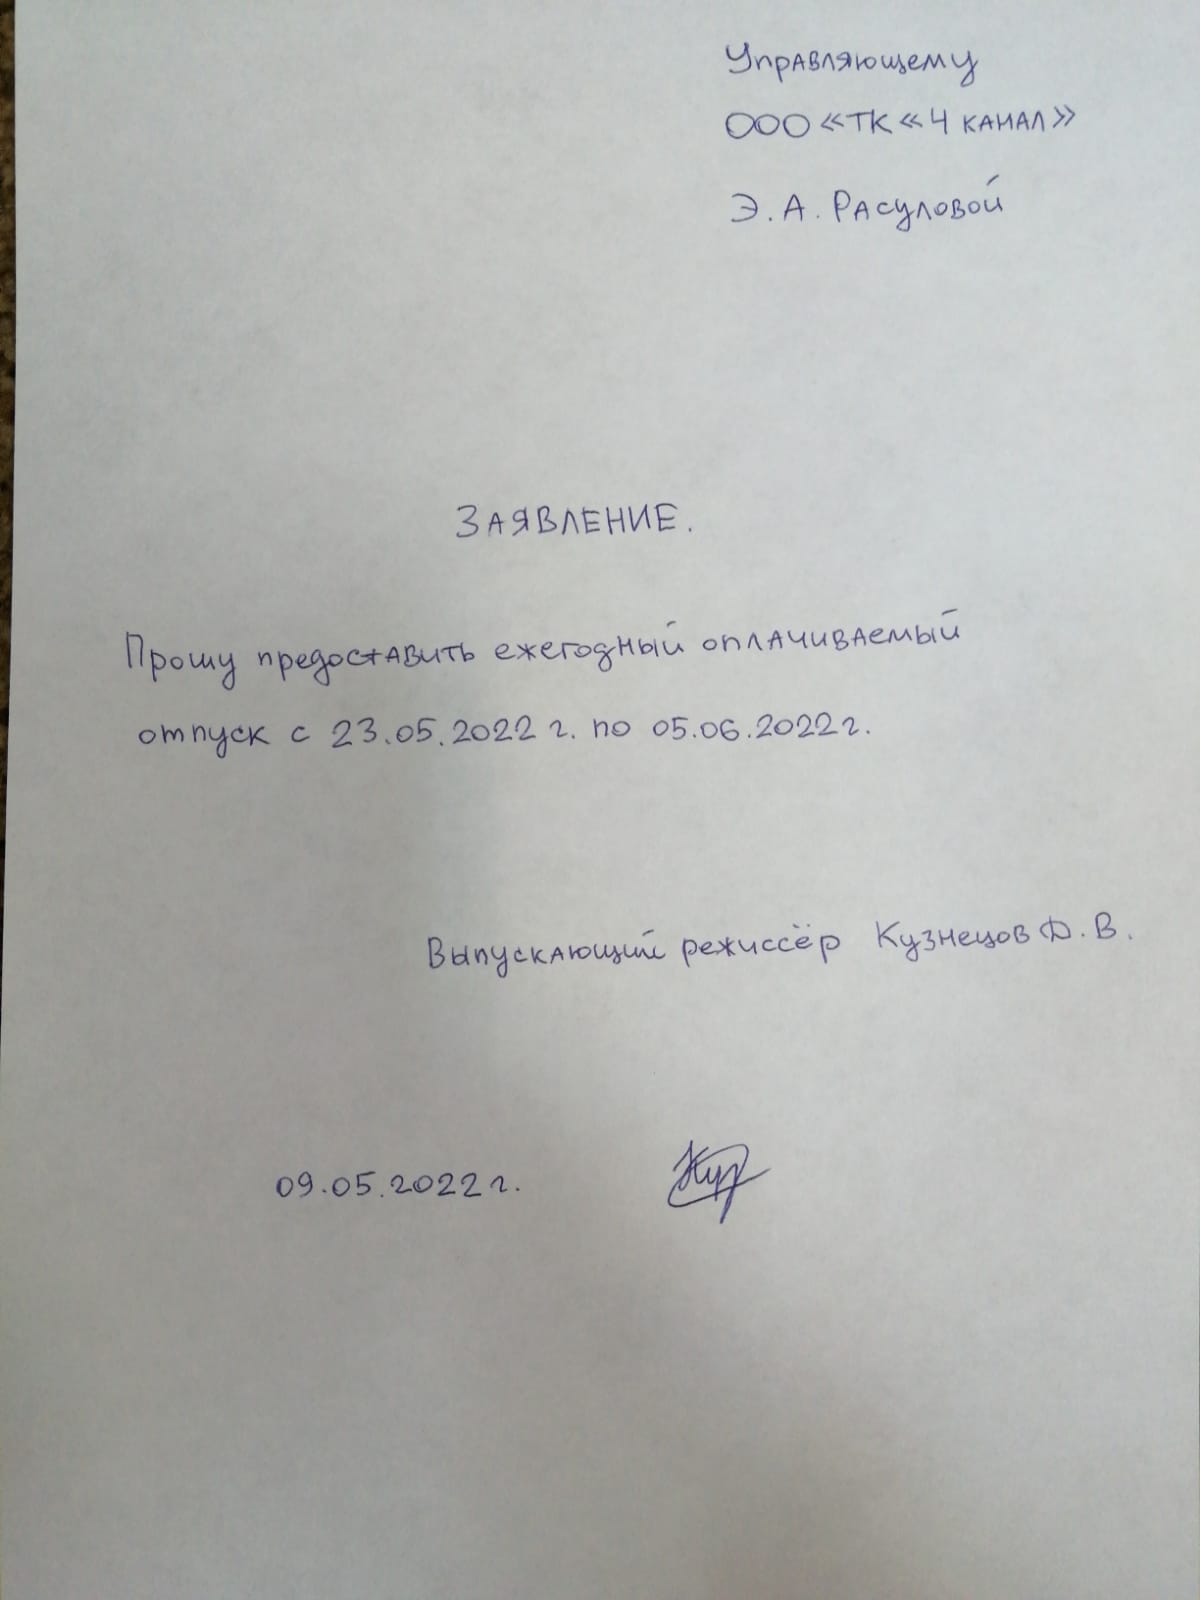 Управляющему
ООО «ТК «4 КАНАЛ»
Э.А. Расуловой
ЗАЯВЛЕНИЕ.
Прошу предоставить ежегодный оплачиваемый
отпуск с 23.05.2022 г. по 05.06.2022 г.
Выпускающий режиссёр Кузнецов Д.В.
09.05.2022 г.